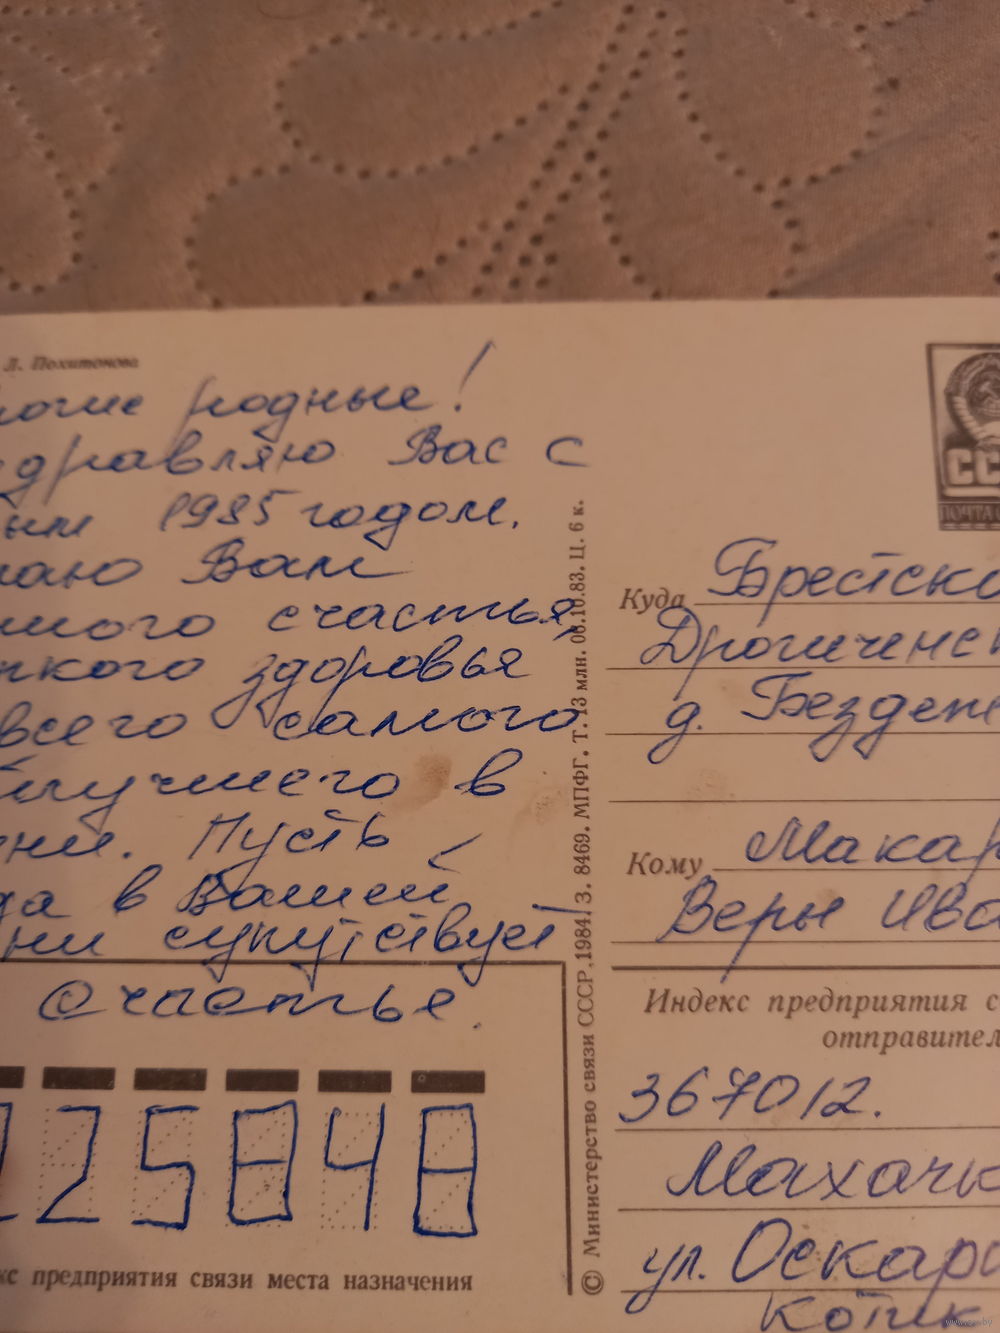 Л. Похитонова
огие родные!
здравляю Вас с
ым 1985 годом.
лаю Вам
много счастья,
пкого здоровья
всего самого
илучшего в
зни. Пусть
да в Вашей
зни супутствует
счастье.
225848
кс предприятия связи места назначения
© Министерство связи СССР, 1984. З. 8469. МПФГ. Т. 13 млн. 06.10.83. Ц. 6 к.
СС
ПОЧТА
Куда Брестска
Дрогиченск
д. Бездеж
Кому Макар
Веры Ива
Индекс предприятия с
отправител
367012.
Махачк
ул. Оскара
Котик